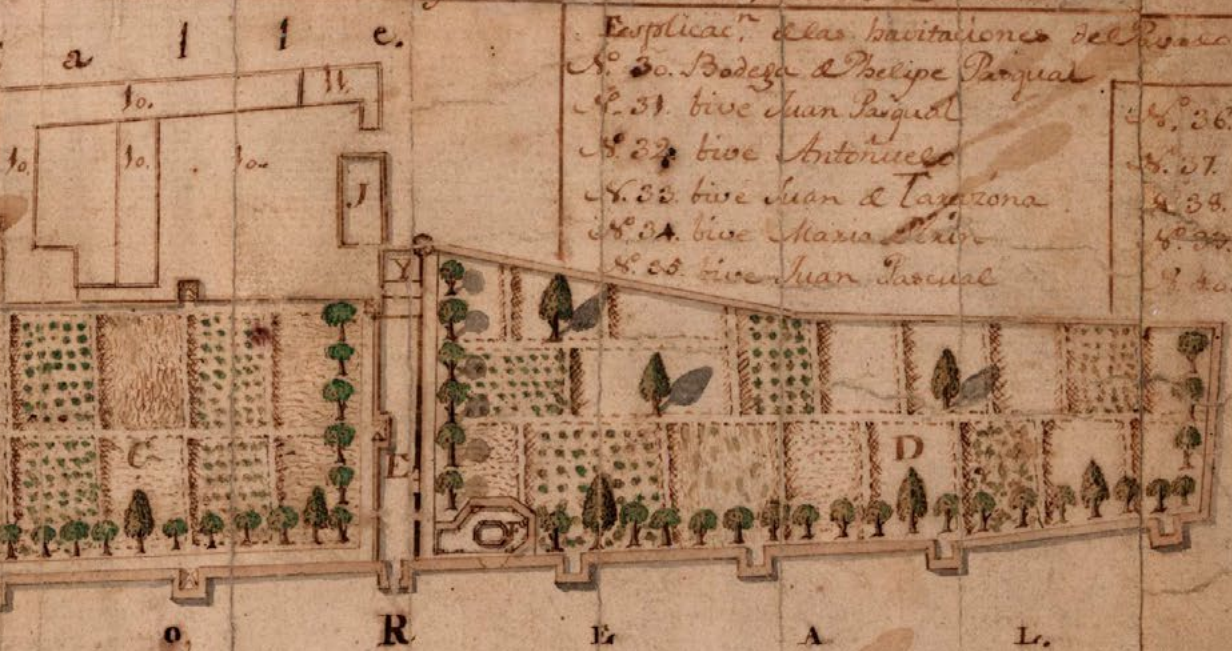 a l l e.
10. 11.
10. 10. 10.
J
Esplicac.n de las havitaciones del
N.o 30. Bodega de Phelipe Pasqual
N.o 31. bive Juan Pasqual
N.o 32. bive Antoñuelo
N.o 33. bive Juan de Tarazona
N.o 34. bive Maria
N.o 35. bive Juan Pascual
N.o 36
N. 37.
38.
Y
C
E
D
o R E A L.